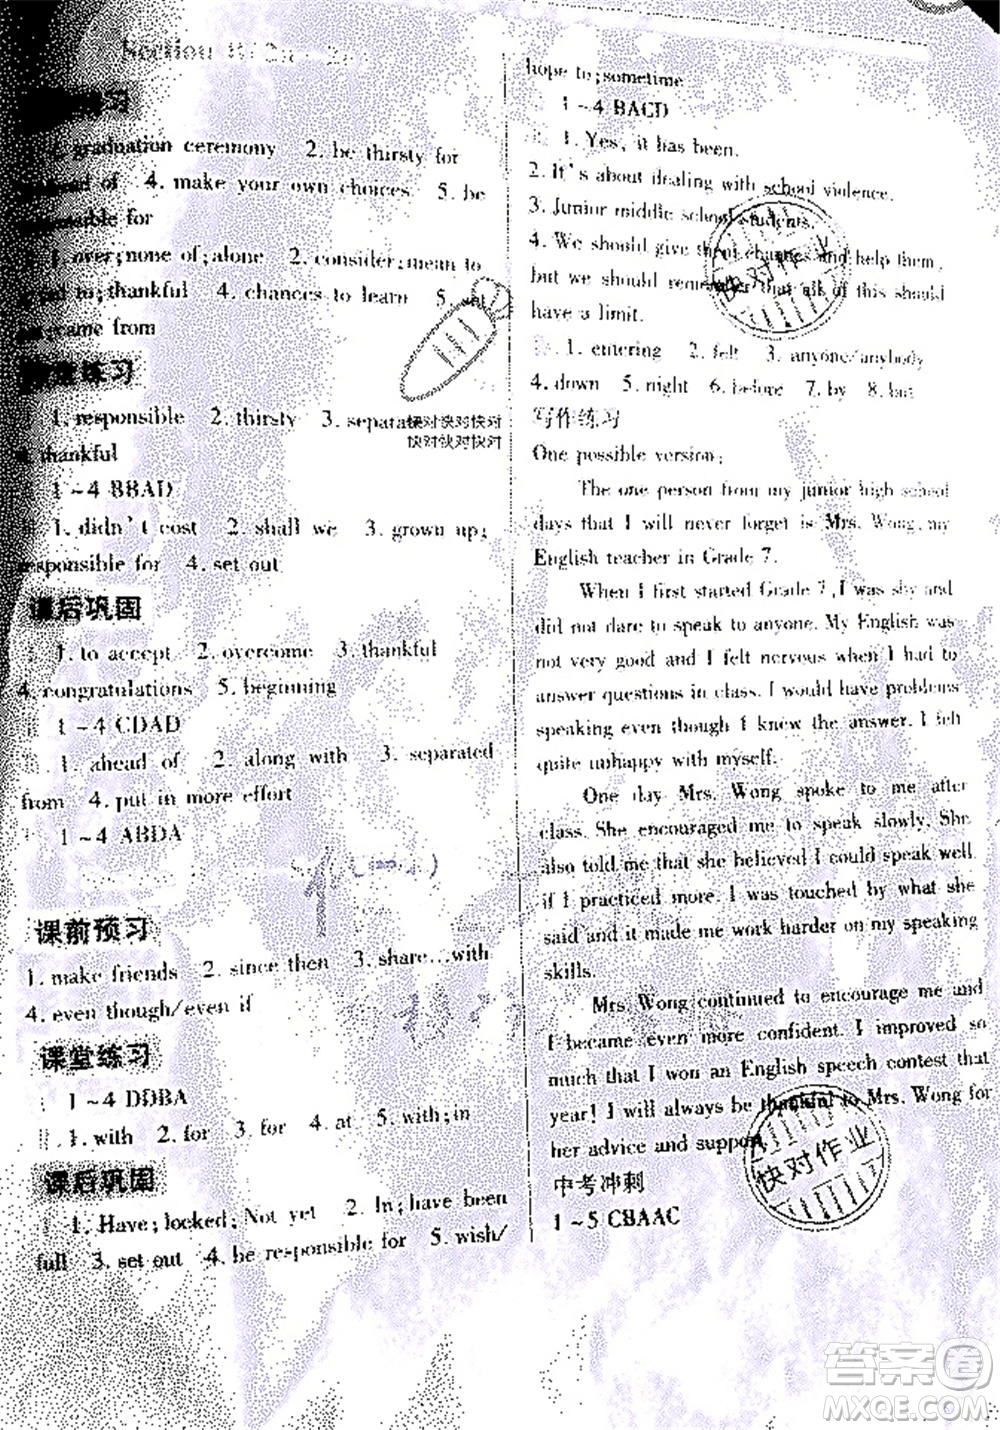 Section B(2a-2e)
练习
graduation ceremony 2. be thirsty for
ahead of 4. make your own choices 5. be
responsible for
1. over;none of;alone 2. consider;mean to
to;thankful 4. chances to learn 5. set
came from
练习
1. responsible 2. thirsty 3. separate
4. thankful
1~4 BBAD
1. didn't cost 2. shall we 3. grown up;
responsible for 4. set out
课后巩固
1. to accept 2. overcome 3. thankful
4. congratulations 5. beginning
1~4 CDAD
1. ahead of 2. along with 3. separated
from 4. put in more effort
1~4 ABDA
课前预习
1. make friends 2. since then 3. share...with
4. even though/even if
课堂练习
1~4 DDBA
Ⅱ. 1. with 2. for 3. for 4. at 5. with;in
课后巩固
1. Have;locked;Not yet 2. In;have been
full 3. set out 4. be responsible for 5. wish/
hope to;sometime
1~4 BACD
1. Yes, it has been.
2. It's about dealing with school violence.
3. Junior middle school students.
4. We should give them chances and help them,
but we should remember that all of this should
have a limit.
1. entering 2. felt 3. anyone/anybody
4. down 5. night 6. before 7. by 8. but
写作练习
One possible version:
The one person from my junior high school
days that I will never forget is Mrs. Wong, my
English teacher in Grade 7.
When I first started Grade 7, I was shy and
did not dare to speak to anyone. My English was
not very good and I felt nervous when I had to
answer questions in class. I would have problems
speaking even though I knew the answer. I felt
quite unhappy with myself.
One day Mrs. Wong spoke to me after
class. She encouraged me to speak slowly. She
also told me that she believed I could speak well
if I practiced more. I was touched by what she
said and it made me work harder on my speaking
skills.
Mrs. Wong continued to encourage me and
I became even more confident. I improved so
much that I won an English speech contest that
year! I will always be thankful to Mrs. Wong for
her advice and support.
中考冲刺
1~5 CBAAC
快对快对快对
快对快对快对
快对作业
快对作业
答案卷
MXQE.COM